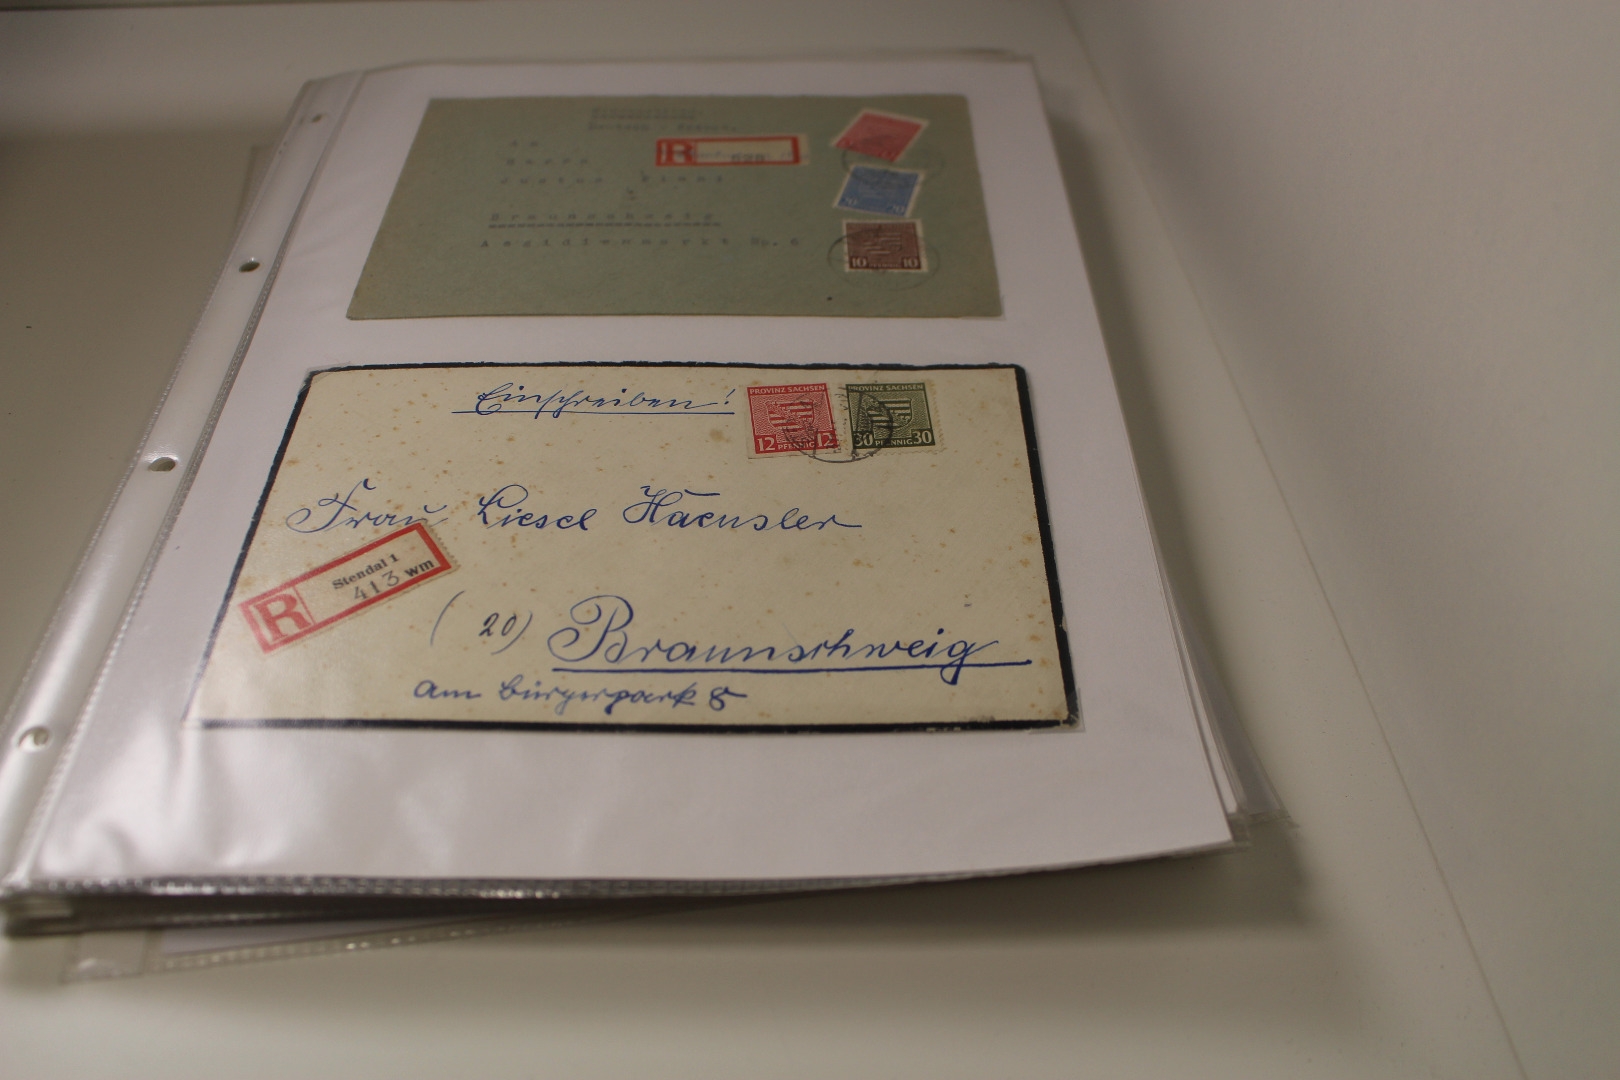 R
An
Herrn
Braunschweig
Aegidienmarkt Nr. 6
20 20
10 10
Einschreiben!
PROVINZ SACHSEN
12 PFENNIG 12
PROVINZ SACHSEN
30 PFENNIG 30
Frau Liesel Haensler
R
Stendal 1
413 wm
(20) Braunschweig
am Bürgerpark 5